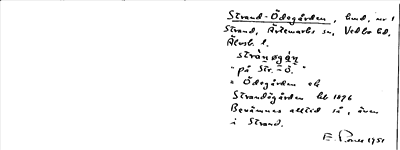 Strand-Ödegården, hmd, nr 1
Strand, Ärtemarks sn, Vedbo hd,
Älvsb. l.
strànøgán
"på Str.-Ö."
= Ödegården el.
Strandögården bl 1896
Benämnes alltid så, även
i Strand.
1951